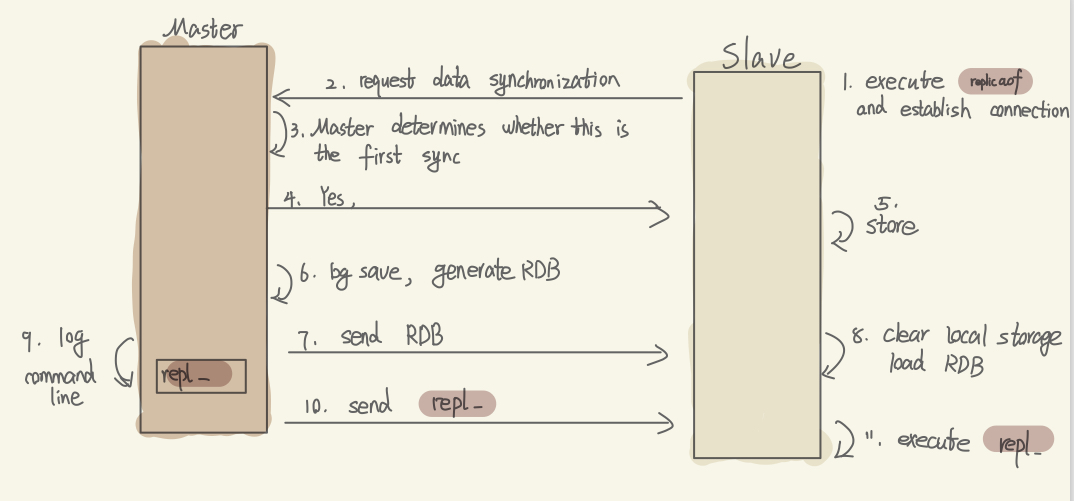 Master
Slave
1. execute replicaof
and establish connection
2. request data synchronization
3. Master determines whether this is
the first sync
4. Yes,
5.
store
6. bg save, generate RDB
7. send RDB
8. clear local storage
load RDB
9. log
command
line
repl_
10. send repl_
11. execute repl_